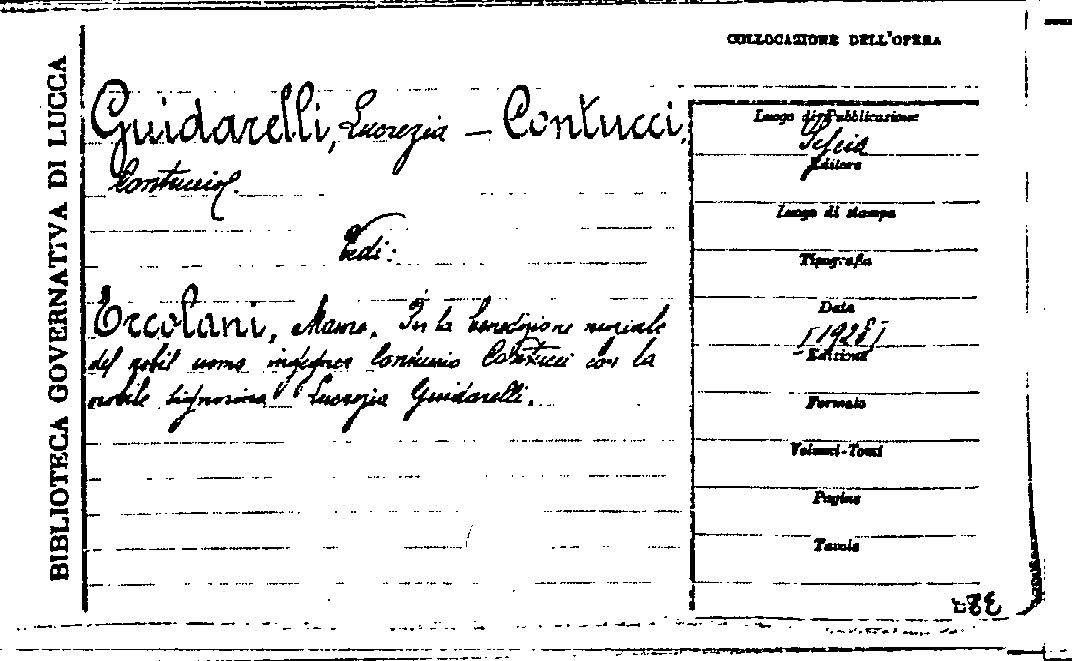 BIBLIOTECA GOVERNATIVA DI LUCCA
COLLOCAZIONE DELL'OPERA
Guidarelli, Lucrezia — Contucci,
Contuccio.
Vedi:
Ercolani, Mauro. Per la benedizione nuziale
del nobil uomo ingegnere Contuccio Contucci con la
nobile signorina Lucrezia Guidarelli.
Luogo di Pubblicazione
Editore
Luogo di stampa
Tipografia
Data
[1928]
Edizione
Formato
Volumi-Tomi
Pagine
Tavole